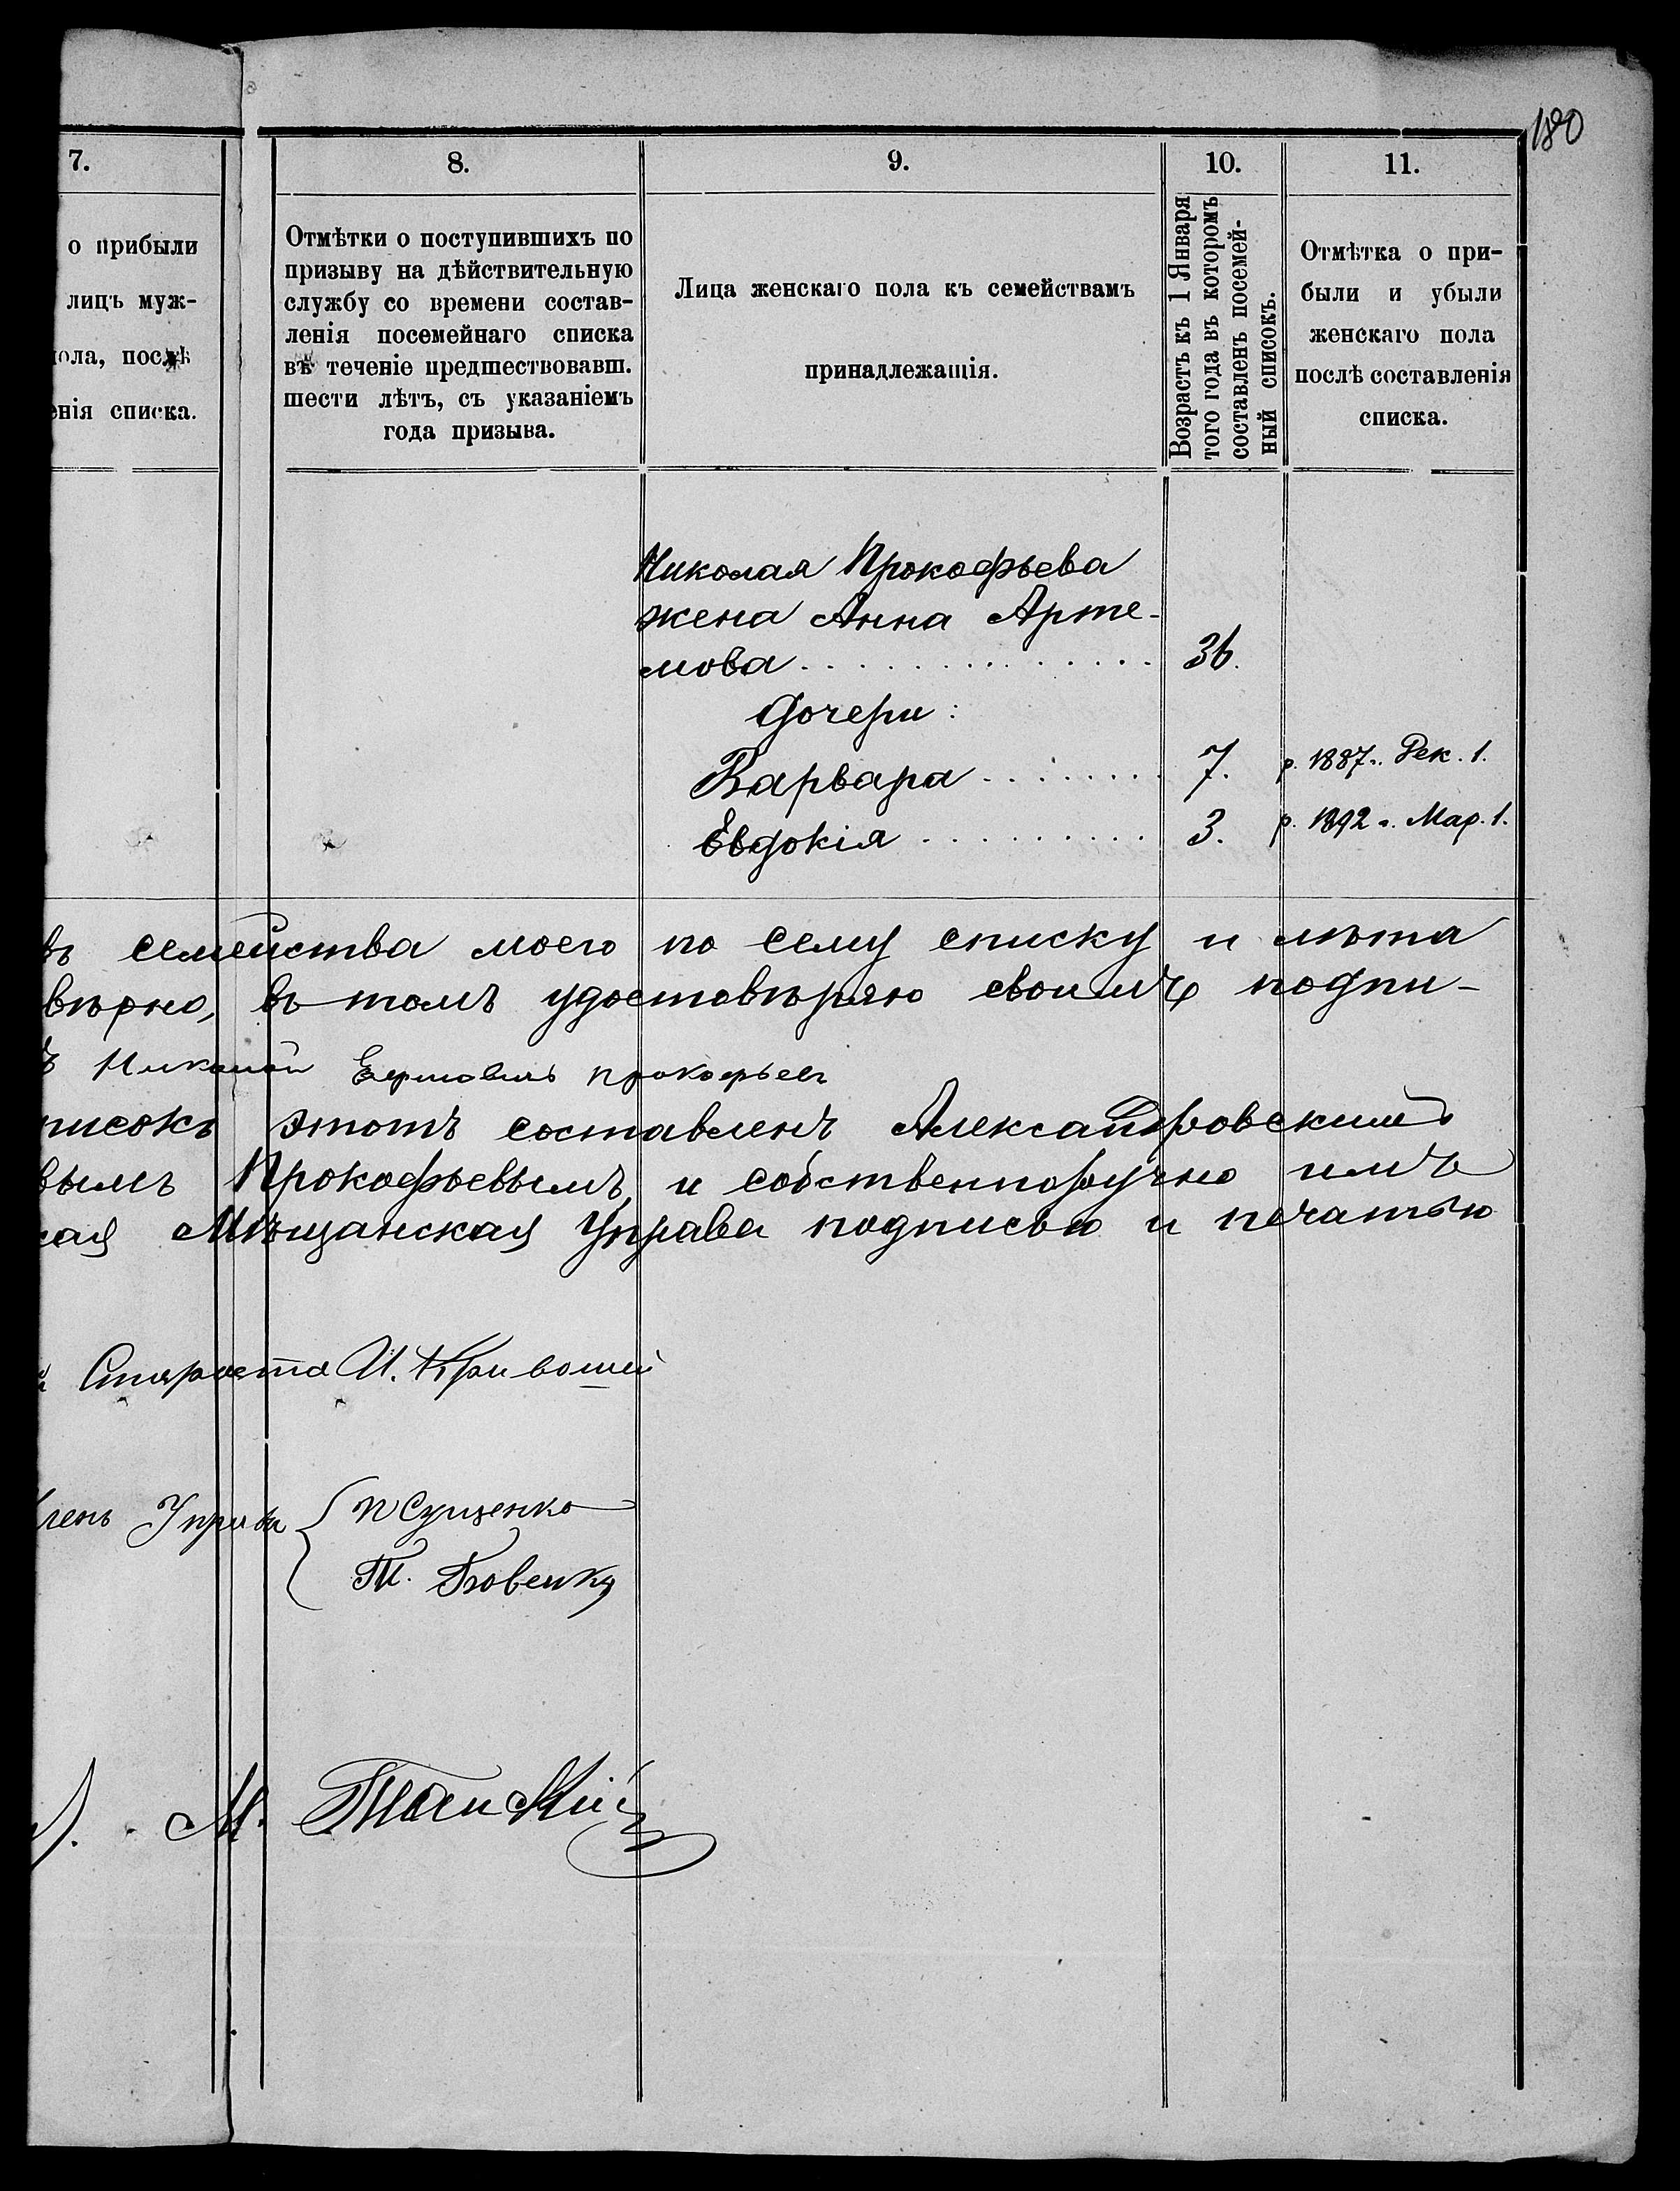 180
7.
о прибыли
лицъ муж-
пола, послѣ
енія списка.
8.
Отмѣтки о поступившихъ по
призыву на дѣйствительную
службу со времени состав-
ленія посемейнаго списка
въ теченіе предшествовавш.
шести лѣтъ, съ указаніемъ
года призыва.
9.
Лица женскаго пола къ семействамъ
принадлежащія.
10.
Возрастъ къ 1 Января
того года въ которомъ
составленъ посемей-
ный списокъ.
11.
Отмѣтка о при-
были и убыли
женскаго пола
послѣ составленія
списка.
Николая Прокофьева
жена Анна Арте-
мова 36.
дочери:
Варвара 7. р. 1887 г. Дек. 1.
Евдокія 3. р. 1892 г. Мар. 1.
въ семейства моего по сему списку и лѣта
вѣрно, въ томъ удостовѣряю своимъ подпи-
ъ Николай прокофьевъ
писокъ этотъ составленъ Александровскимъ
вымъ Прокофьевымъ, и собственноручно имъ
кая Мѣщанская Управа подписью и печатью
й Староста И. Кривошей
Членъ Управы П Сущенко
Т.
М.